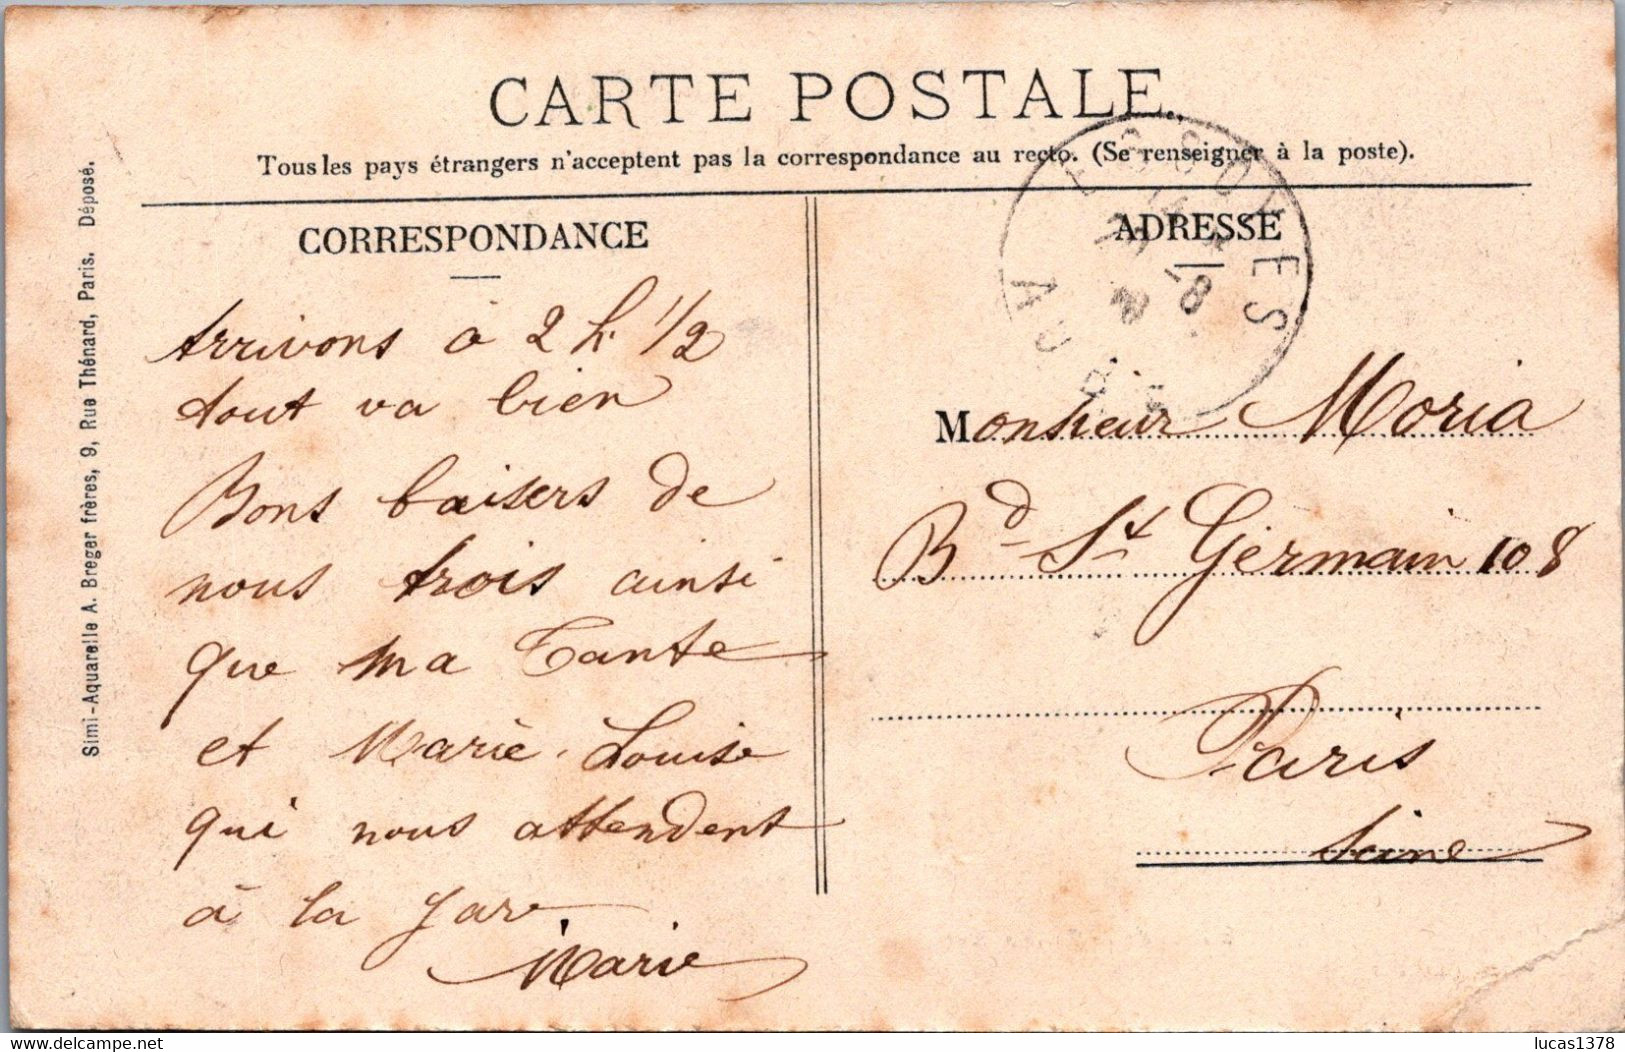 CARTE POSTALE
Tous les pays étrangers n'acceptent pas la correspondance au recto. (Se renseigner à la poste).
CORRESPONDANCE
Arrivons à 2 h. 1/2
tout va bien
Bons baisers de
nous trois ainsi
que ma Tante
et Marie-Louise
qui nous attendent
à la gare
Marie
ADRESSE
Monsieur Moria
Bd St Germain 108
Paris
Seine
ESSOYES
AUBE
Simi-Aquarelle A. Breger frères, 9, Rue Thénard, Paris. Déposé.
delcampe.net
lucas1378